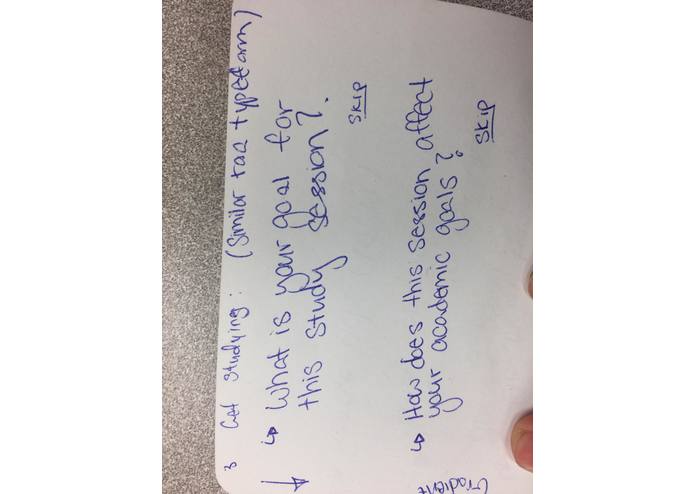 3 Get studying: (Similar to a typeform)
↳ What is your goal for
this study session?
SKIP
↳ How does this session affect
your academic goals?
SKIP
Gradient